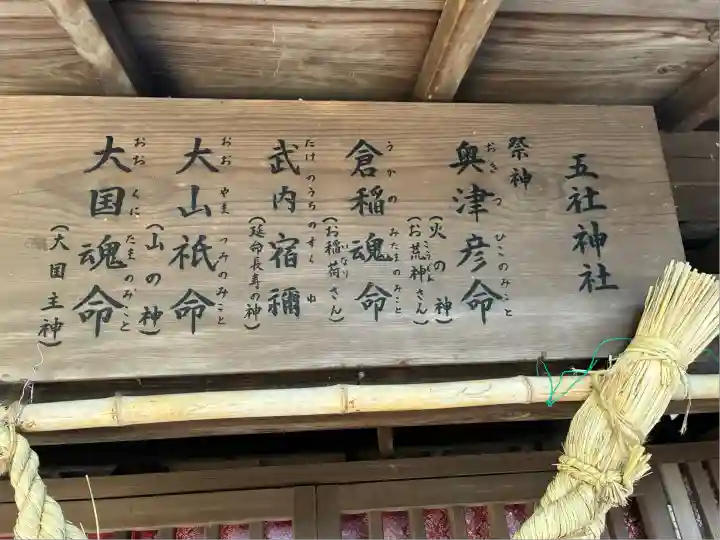 五社神社
祭神
奥津彦命
おきつひこのみこと
(火の神)
(お荒神さん)
こうじん
倉稲魂命
うかのみたまのみこと
(お稲荷さん)
いなり
武内宿禰
たけのうちのすくね
(延命長寿の神)
大山祇命
おおやまつみのみこと
(山の神)
大国魂命
おおくにたまのみこと
(大国主神)